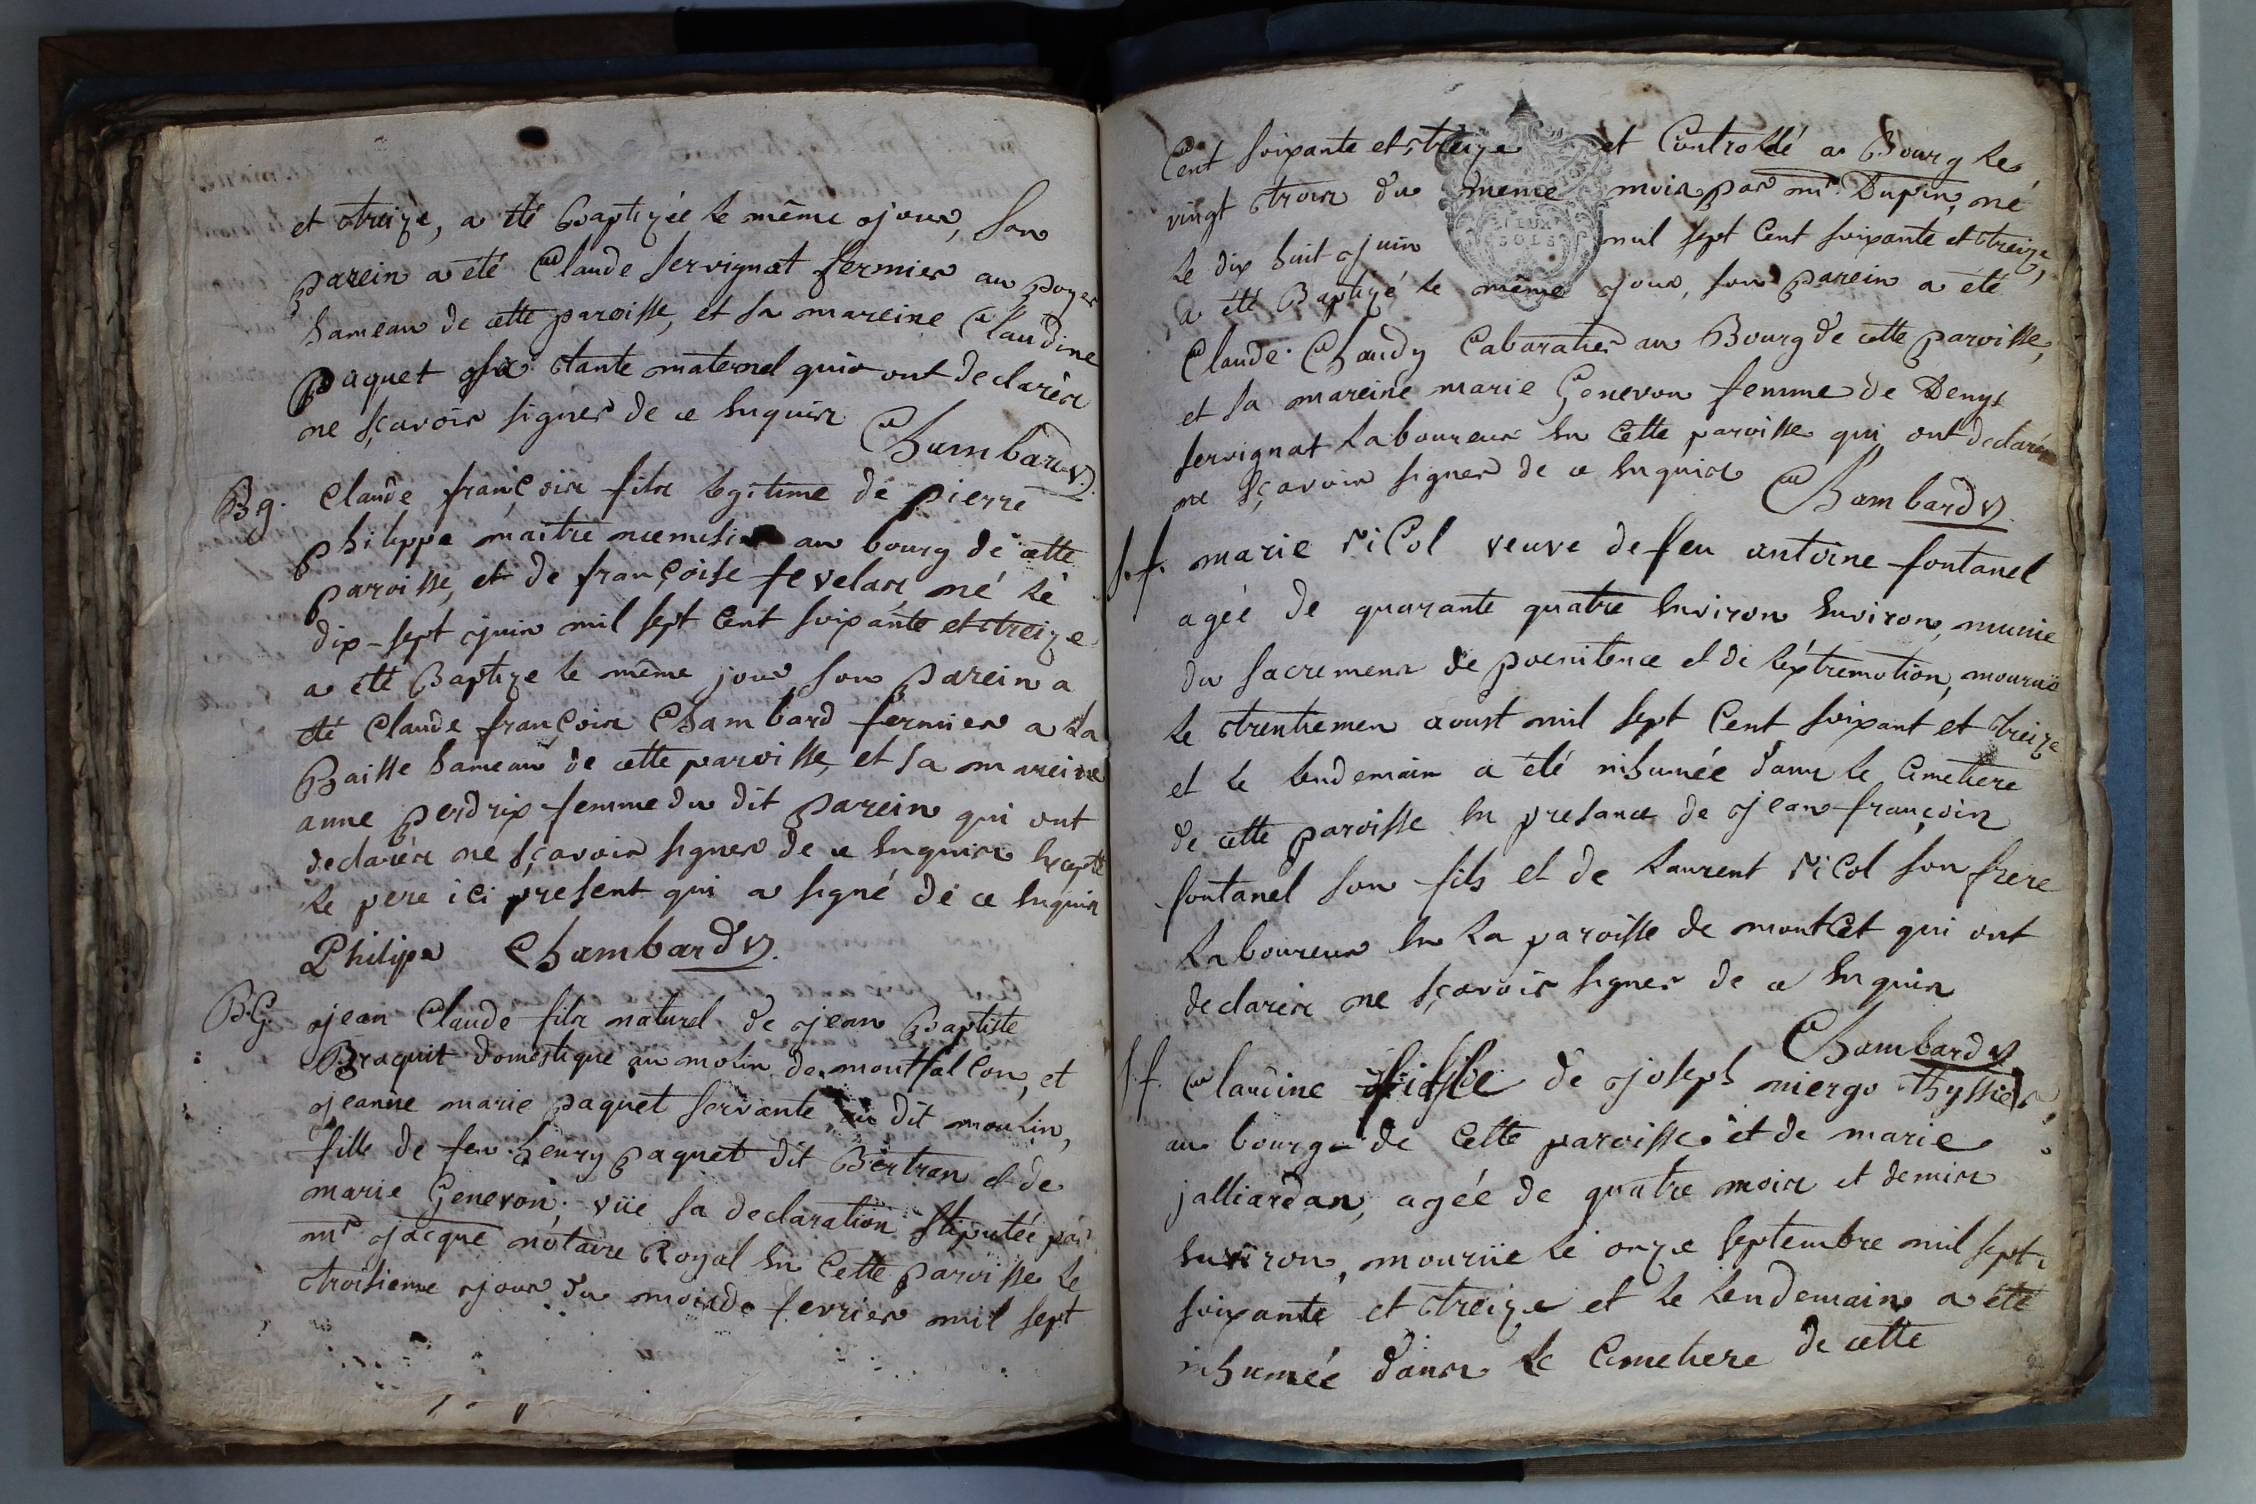 et treize, a été Baptizée le même jour, son
parein a été Claude servignat fermier au poyet
hameau de cette paroisse, et sa mareine Claudine
paquet sa tante maternel qui ont declarés
ne sçavoir signer de ce Enquis
Chambard v.
B g. Claude françois fils legitime de pierre
philippe maitre au bourg de cette
paroisse, et de françoise fevelas né le
dix-sept juin mil sept Cent soixante et treize
a été Baptize le même jour son parein a
été Claude françois Chambard fermier a La
Baisse hameau de cette paroisse, et sa mareine
anne perdrix femme du dit parein qui ont
declarés ne sçavoir signer de ce Enquis Excepté
Le pere ici present qui a signé de ce Enquis
Philipe Chambard v.
B.G. jean Claude fils naturel de jean Baptiste
Braquit domestique au molin de montfalcon, et
jeanne marie paquet servante au dit moulin,
fille de feu henry paquet dit Bertran et de
marie Genevon, vüe sa declaration stipulée par
mr jacque notaire Royal En Cette paroisse Le
troisieme jour du mois de fevrier mil sept
Cent soixante et treize et Controllé a Bourg Le
vingt trois du meme mois par mr. Dupin, né
Le dix huit juin mil sept Cent soixante et treize,
a été Baptizé le même jour, son parein a été
Claude Chaudy Cabaratier au Bourg de cette paroisse,
et sa mareine marie Genevon femme de Denys
servignat Laboureur En Cette paroisse qui ont declarés
ne sçavoir signer de ce Enquis
Chambard v.
S.f. marie niCol veuve de feu antoine fontanel
agée de quarante quatre Environ Environ, munie
du sacremens de poenitence et de Léxtremotion, mouruë
le trentiemen aoust mil sept Cent soixant et treize
et le lendemain a été inhumée dans le Cimetiere
de cette paroisse En presance de jean françois
fontanel son fils et de Laurent niCol son frere
Laboureur En La paroisse de montCet qui ont
declarés ne sçavoir signer de ce Enquis
Chambard v
S.f. Claudine de joseph niergo thyssier
au bourg de Cette paroisse et de marie
jalliardan, agée de quatre mois et demis
Environ, mouruë le onze septembre mil sept
soixante et treize et le Lendemain a été
inhumée dans Le Cimetiere de cette